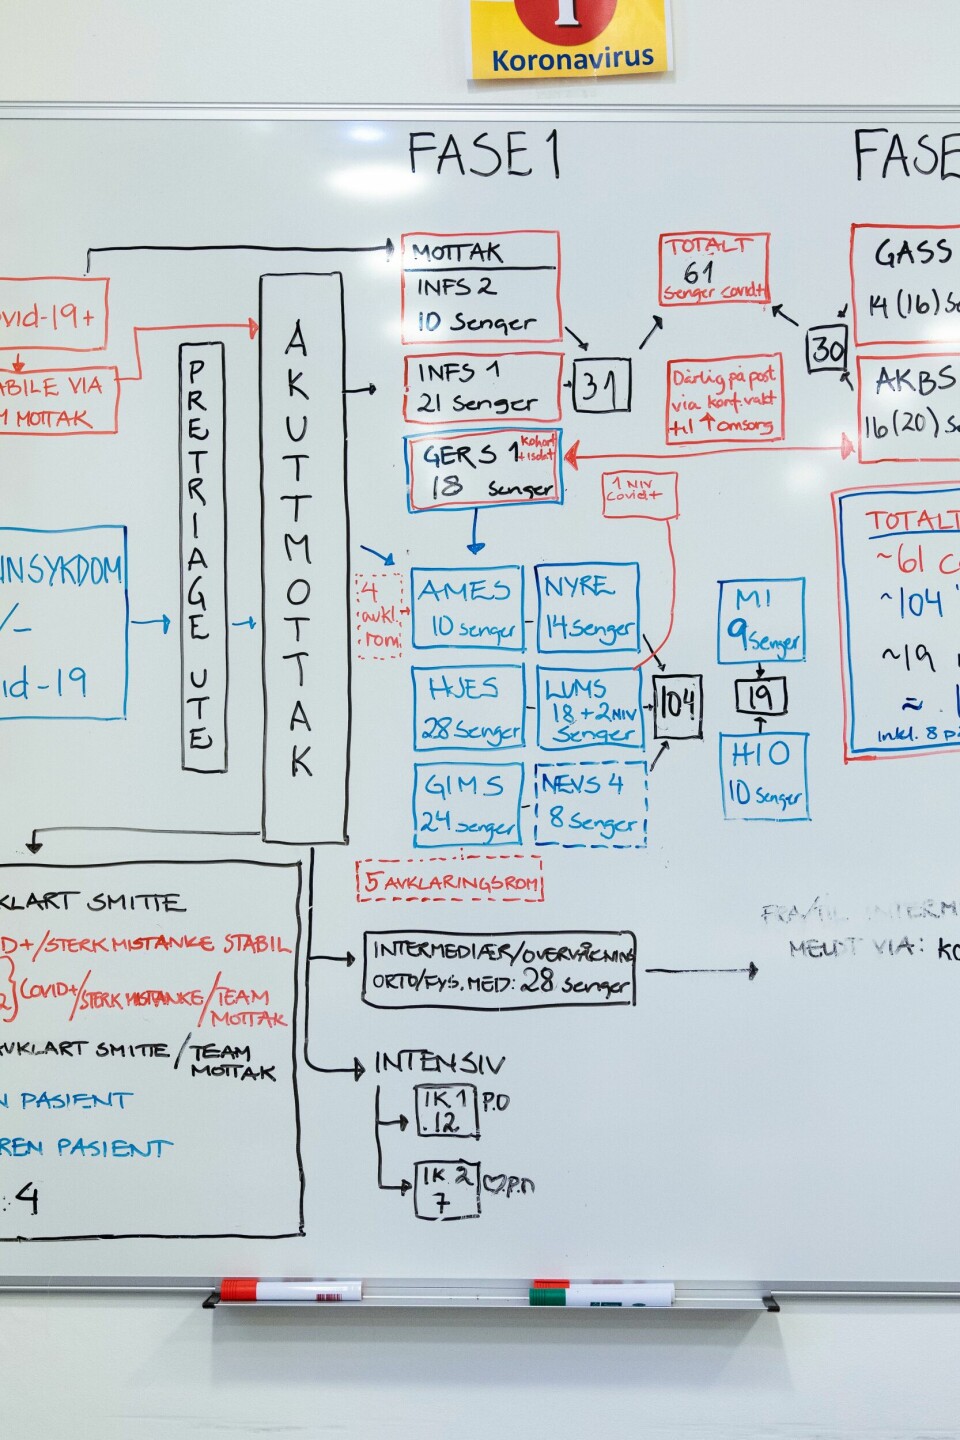 1
Koronavirus
FASE 1
FASE
MOTTAK
INFS 2
10 Senger
INFS 1
21 Senger
GERS 1
kohort
+isolat
18 Senger
31
TOTALT
61
Senger covid+
Dårlig på post
via konf.vakt
til ↑ omsorg
1 NIV
covid+
30
GASS
14 (16)
AKBS
16 (20)
vid-19+
ABILE VIA
MOTTAK
PRETRIAGE UTE
AKUTTMOTTAK
NNSYKDOM
/-
id-19
4
avkl.
rom
AMES
10 Senger
NYRE
14 Senger
HJES
28 Senger
LUMS
18 + 2 NIV
Senger
GIMS
24 Senger
NEVS 4
8 Senger
104
MI
9 Senger
19
HIO
10 Senger
TOTALT
~61
~104
~19
≈
inkl. 8 p
5 AVKLARINGSROM
KLART SMITTE
D+/STERK MISTANKE STABIL
2 } COVID+/STERK MISTANKE/TEAM
MOTTAK
AVKLART SMITTE/TEAM
MOTTAK
N PASIENT
REN PASIENT
: 4
INTERMEDIÆR/OVERVÅKNING
ORTO/FYS.MED: 28 Senger
FRA/TIL INTERM
MELDT VIA: KO
INTENSIV
IK 1 P.O
12
IK 2 ♡.P.N
7